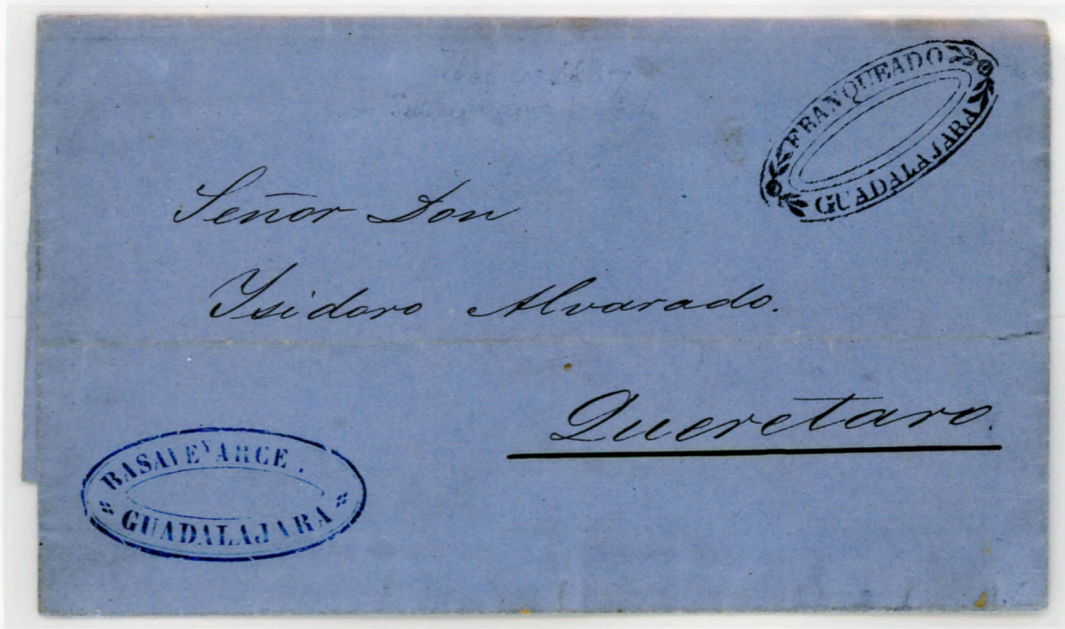 FRANQUEADO
GUADALAJARA
Señor Don
Ysidoro Alvarado.
Queretaro.
BASAVE Y ARCE.
GUADALAJARA